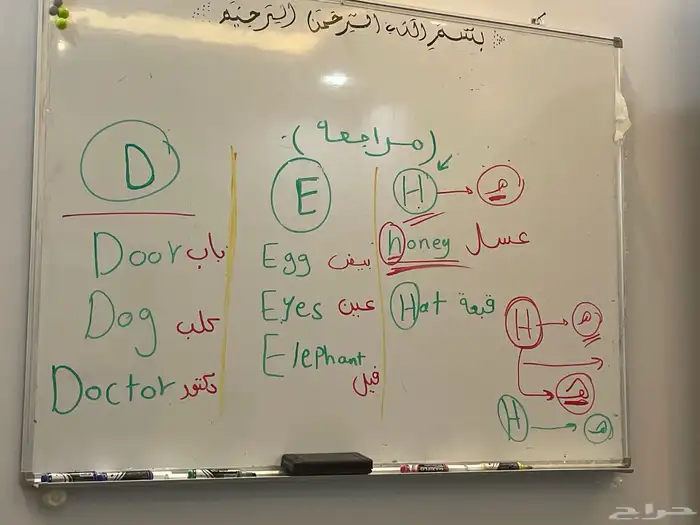 بسم الله الرحمن الرحيم
(مراجعة)
D
Door باب
Dog كلب
Doctor دكتور
E
Egg بيض
Eyes عين
Elephant فيل
H → هـ
honey عسل
Hat قبعة
H → هـ
هـ
H → هـ
حراج